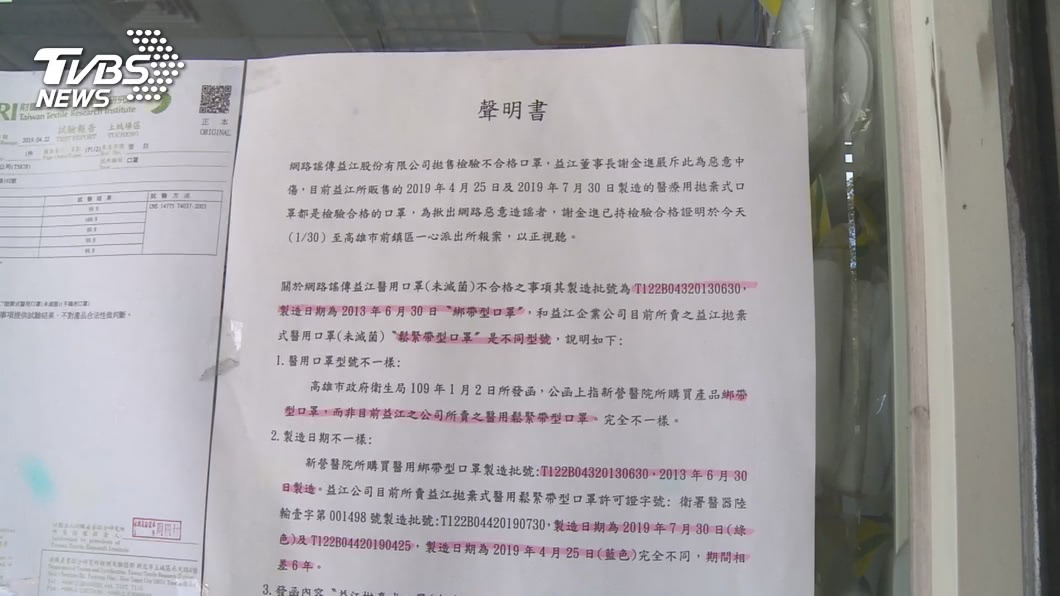 TVBS
NEWS
Taiwan Textile Research Institute
正本
ORIGINAL
試驗報告 土城場區
2019.04.22 TEST REPORT TUCHENG
試驗結果
試驗方法
CNS 14775 T4037-2003
事項提供試驗結果,不對產品合法性做判斷。
聲明書
網路謠傳益江股份有限公司拋售檢驗不合格口罩,益江董事長謝金進嚴斥此為惡意中
傷,目前益江所販售的 2019 年 4 月 25 日及 2019 年 7 月 30 日製造的醫療用拋棄式口
罩都是檢驗合格的口罩,為揪出網路惡意造謠者,謝金進已持檢驗合格證明於今天
(1/30) 至高雄市前鎮區一心派出所報案,以正視聽。
關於網路謠傳益江醫用口罩(未滅菌)不合格之事項其製造批號為 T122B04320130630,
製造日期為 2013 年 6 月 30 日〝綁帶型口罩〞,和益江企業公司目前所賣之益江拋棄
式醫用口罩(未滅菌)〝鬆緊帶型口罩〞是不同型號,說明如下:
1.醫用口罩型號不一樣:
高雄市政府衛生局 109 年 1 月 2 日所發函,公函上指新營醫院所購買產品綁帶
型口罩,而非目前益江之公司所賣之醫用鬆緊帶型口罩、完全不一樣。
2.製造日期不一樣:
新營醫院所購買醫用綁帶型口罩製造批號:T122B04320130630,2013 年 6 月 30
日製造。益江公司目前所賣益江拋棄式醫用鬆緊帶型口罩許可證字號: 衛署醫器陸
輸壹字第 001498 號製造批號:T122B04420190730,製造日期為 2019 年 7 月 30 日(綠
色)及 T122B04420190425,製造日期為 2019 年 4 月 25 日(藍色)完全不同,期間相
差 6 年。
3.發函內容〝益江拋棄式